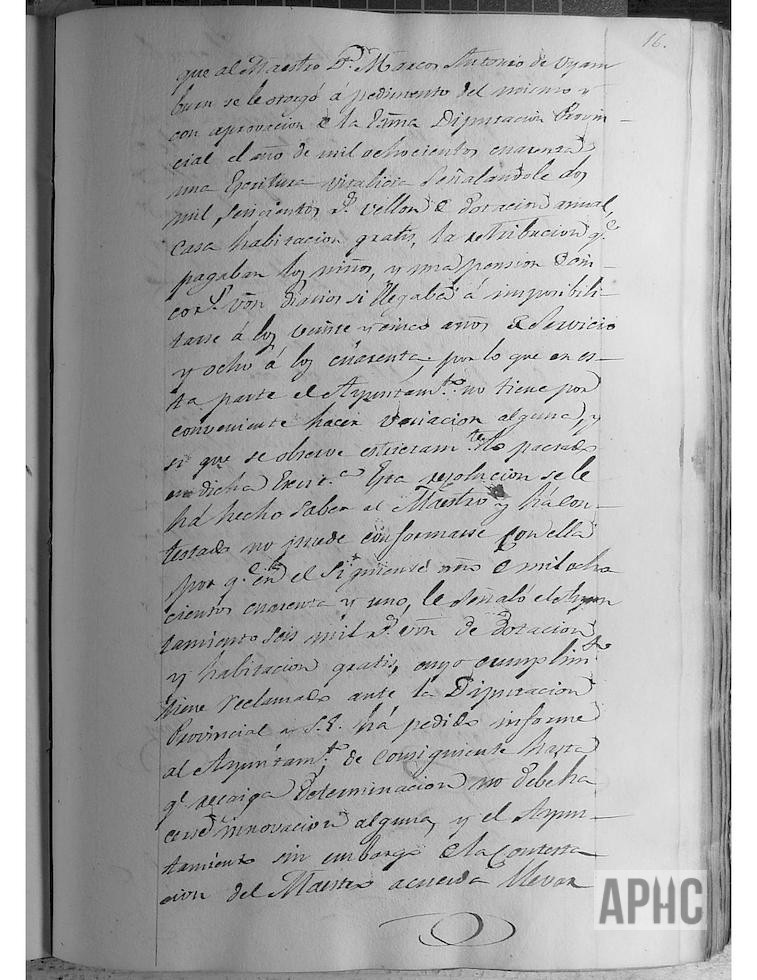 16.
que al Maestro Dn. Marcos Antonio de Oyam
buru se le otorgó á pedimento del mismo y
con aprovacion de la Exma Diputacion Provin-
cial el año de mil ochocientos cuarenta
una Escritura vitalicia señalandole dos
mil, seiscientos rs. vellon de dotacion annual,
casa habitacion gratis, la retribucion q.e
pagaban los niños, y una pension de cin-
co rs. von. diarios si llegaba á imposibili-
tarse á los veinte y cinco años de servicio
y ocho á los cuarenta, por lo que en es-
ta parte el Ayuntam.to no tiene por
conveniente hacer variacion alguna, y
si que se observe estrictam.te lo pactado
en dicha Escrit.a Esta resolucion se le
há hecho saber al Maestro y há con-
testado no puede conformarse con ella
por q.e en el siguiente año de mil ocho
cientos cuarenta y uno, le señaló el Ayun
tamiento seis mil rs. von. de dotacion
y habitacion gratis, cuyo cumplim.to
tiene reclamado ante la Diputacion
Provincial y S.E. há pedido informe
al Ayuntam.to de consiguiente hasta
q.e recaiga determinacion no debe ha
cerse innovacion alguna, y el Ayun-
tamiento sin embargo de la contesta
cion del Maestro acuerda llevar
APHC